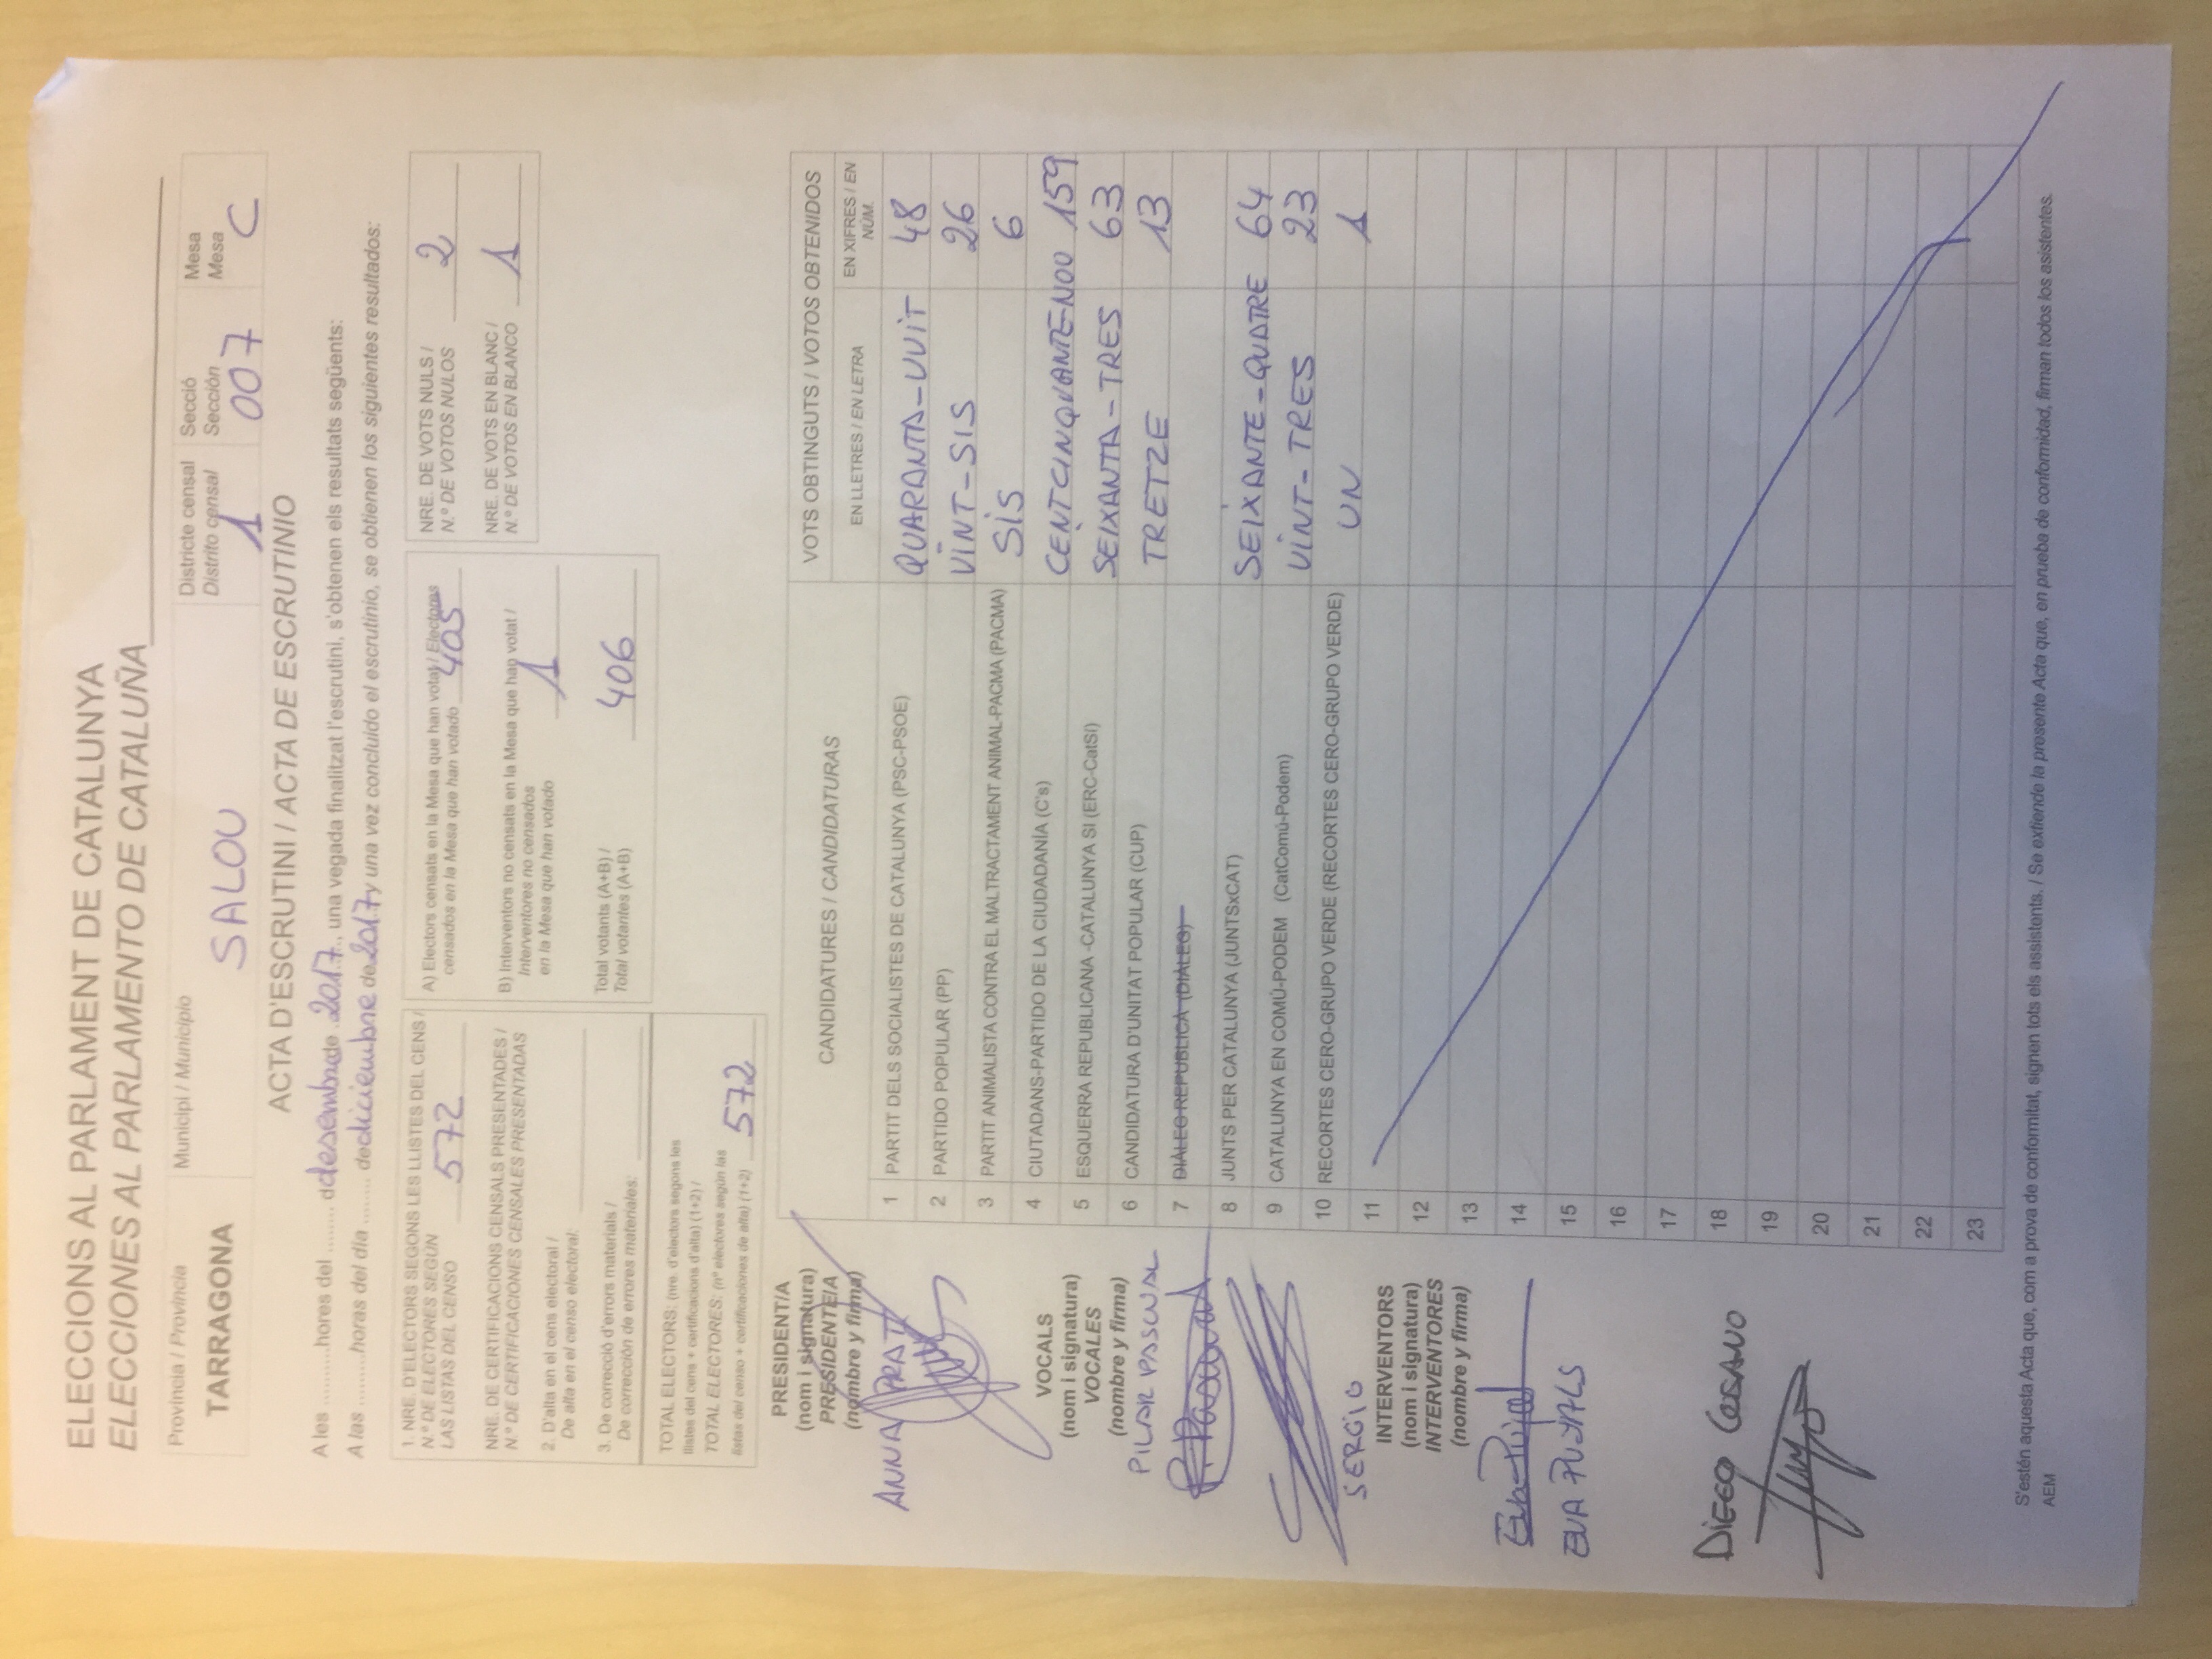 ELECCIONS AL PARLAMENT DE CATALUNYA
ELECCIONES AL PARLAMENTO DE CATALUÑA
Província / Provincia
TARRAGONA
Municipi / Municipio
SALOU
Districte censal
Distrito censal
1
Secció
Sección
007
Mesa
Mesa
C
ACTA D'ESCRUTINI / ACTA DE ESCRUTINIO
A les ..........hores del ........ d desembre de 2017, una vegada finalitzat l'escrutini, s'obtenen els resultats següents:
A las .........horas del día ........ de diciembre de 2017 y una vez concluido el escrutinio, se obtienen los siguientes resultados:
1. NRE. D'ELECTORS SEGONS LES LLISTES DEL CENS /
N.º DE ELECTORES SEGÚN
LAS LISTAS DEL CENSO 572
NRE. DE CERTIFICACIONS CENSALS PRESENTADES /
N.º DE CERTIFICACIONES CENSALES PRESENTADAS
2. D'alta en el cens electoral /
De alta en el censo electoral:
3. De correcció d'errors materials /
De corrección de errores materiales:
TOTAL ELECTORS: (nre. d'electors segons les
llistes del cens + certificacions d'alta) (1+2) /
TOTAL ELECTORES: (nº electores según las
listas del censo + certificaciones de alta) (1+2) 572
A) Electors censats en la Mesa que han votat / Electores
censados en la Mesa que han votado 405
B) Interventors no censats en la Mesa que han votat /
Interventores no censados
en la Mesa que han votado 1
Total votants (A+B) /
Total votantes (A+B) 406
NRE. DE VOTS NULS /
N.º DE VOTOS NULOS 2
NRE. DE VOTS EN BLANC /
N.º DE VOTOS EN BLANCO 1
PRESIDENT/A
(nom i signatura)
PRESIDENTE/A
(nombre y firma)
ANNA PRAT
VOCALS
(nom i signatura)
VOCALES
(nombre y firma)
PILAR PASCUAL
P. Pascual
SERGIO
INTERVENTORS
(nom i signatura)
INTERVENTORES
(nombre y firma)
Eva Pujal
EVA PUJALS
DIEGO
CANDIDATURES / CANDIDATURAS
VOTS OBTINGUTS / VOTOS OBTENIDOS
EN LLETRES / EN LETRA
EN XIFRES / EN
NÚM.
1 PARTIT DELS SOCIALISTES DE CATALUNYA (PSC-PSOE) QUARANTA-VUIT 48
2 PARTIDO POPULAR (PP) VINT-SIS 26
3 PARTIT ANIMALISTA CONTRA EL MALTRACTAMENT ANIMAL-PACMA (PACMA) SIS 6
4 CIUTADANS-PARTIDO DE LA CIUDADANÍA (C's) CENTCINQUANTENOO 159
5 ESQUERRA REPUBLICANA -CATALUNYA SI (ERC-CatSí) SEIXANTA-TRES 63
6 CANDIDATURA D'UNITAT POPULAR (CUP) TRETZE 13
7 DIÀLEG REPUBLICÀ (DIÀLEG)
8 JUNTS PER CATALUNYA (JUNTSxCAT) SEIXANTE-QUATRE 64
9 CATALUNYA EN COMÚ-PODEM (CatComú-Podem) VINT-TRES 23
10 RECORTES CERO-GRUPO VERDE (RECORTES CERO-GRUPO VERDE) UN 1
11
12
13
14
15
16
17
18
19
20
21
22
23
S'estén aquesta Acta que, com a prova de conformitat, signen tots els assistents. / Se extiende la presente Acta que, en prueba de conformidad, firman todos los asistentes.
AEM